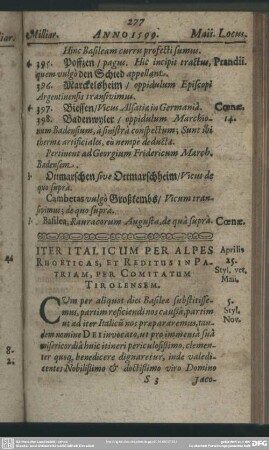 277
Milliar. ANNO 1599. Maii. Locus.
Hinc Basileam curru profecti sumus.
385. Poffzen / pagus. Hic incipit tractus, Prandii.
quem vulgò den Schied appellant.
386. Marckelsheim / oppidulum Episcopi
Argentinensis transivimus.
397. Biesen / Vicus Alsatiæ in Germaniâ. Cœnæ.
398. Badenwyler / oppidulum Marchio- 14.
num Badensium, à sinistrâ conspectum; Sunt ibi
therme artificiales, eò nempe deductæ.
Pertinent ad Georgium Fridericum March.
Badensem.
Otmarschen sive Otmarschheim / Vicus de
quo suprà.
Camberat vulgò Großkembs / Vicum trans-
ivimus; de quo suprà.
Basilea, Rauracorum Augusta, de quâ suprà. Cœnæ.
ITER ITALICUM PER ALPES Aprilis
RHÆTICAS, ET REDITUS IN PA- 25.
TRIAM, PER COMITATUM Styl. vet.
TIROLENSEM. Maii.
CUm per aliquot dies Basileæ substitisse- 5.
mus, partim reficiendi nos causâ, partim Styl.
ut ad iter Italicū nos prepararemus, tan- Nov.
dem nomine DEI invocato, ut pro immensâ suâ
misericordiâ huic itineri periculosissimo, clemen-
ter quoq, benedicere dignaretur, inde valedi-
centes Nobilissimo & doctissimo viro Domino
S 3 Jaco-
8.
2.